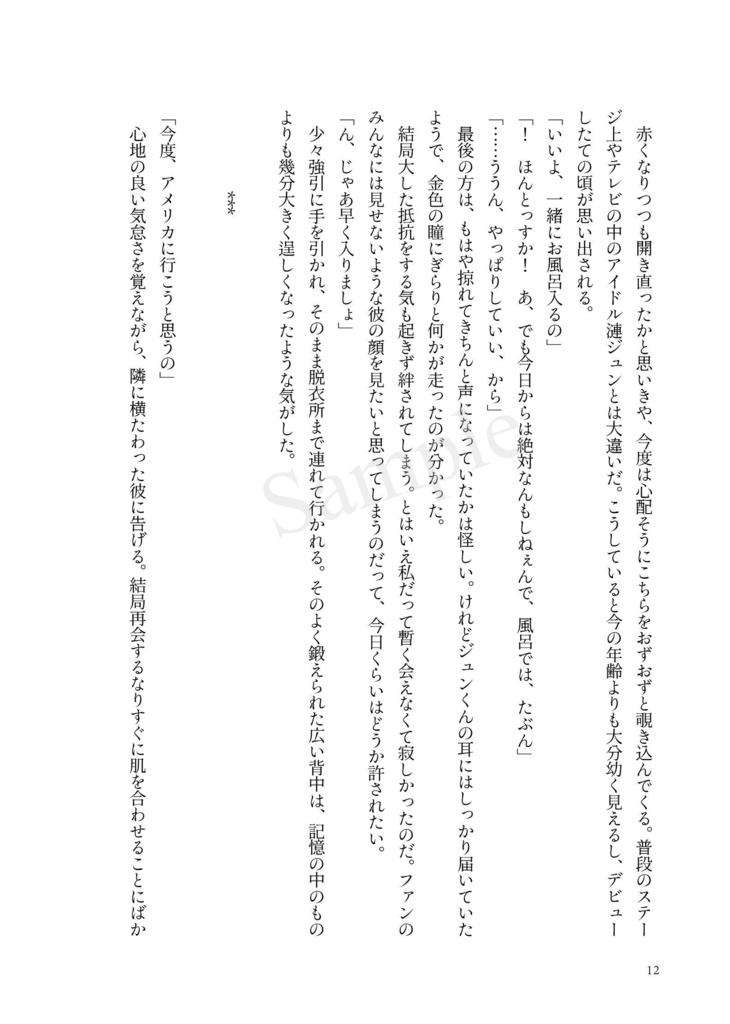 赤くなりつつも開き直ったかと思いきや、今度は心配そうにこちらをおずおずと覗き込んでくる。普段のステー
ジ上やテレビの中のアイドル漣ジュンとは大違いだ。こうしていると今の年齢よりも大分幼く見えるし、デビュー
したての頃が思い出される。
「いいよ、一緒にお風呂入るの」
「！　ほんとっすか！　あ、でも今日からは絶対なんもしねぇんで、風呂では、たぶん」
「……ううん、やっぱりしていい、から」
最後の方は、もはや掠れてきちんと声になっていたかは怪しい。けれどジュンくんの耳にはしっかり届いていた
ようで、金色の瞳にぎらりと何かが走ったのが分かった。
結局大した抵抗をする気も起きず絆されてしまう。とはいえ私だって暫く会えなくて寂しかったのだ。ファンの
みんなには見せないような彼の顔を見たいと思ってしまうのだって、今日くらいはどうか許されたい。
「ん、じゃあ早く入りましょ」
少々強引に手を引かれ、そのまま脱衣所まで連れて行かれる。そのよく鍛えられた広い背中は、記憶の中のもの
よりも幾分大きく逞しくなったような気がした。
***
「今度、アメリカに行こうと思うの」
心地の良い気怠さを覚えながら、隣に横たわった彼に告げる。結局再会するなりすぐに肌を合わせることにばか
12
Sample